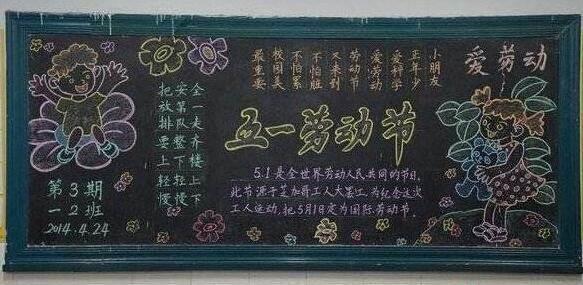 爱劳动
小朋友
正年少
爱科学
爱劳动
劳动节
又来到
不怕脏
不怕累
校园美
最重要
五一劳动节
5.1是全世界劳动人民共同的节日,
此节源于芝加哥工人大罢工,为纪念这次
工人运动,把5月1日定为国际劳动节。
把安全
放第一
排队走
要整齐
上下楼
轻轻上
慢慢下
第3期
一2班
2014.4.24